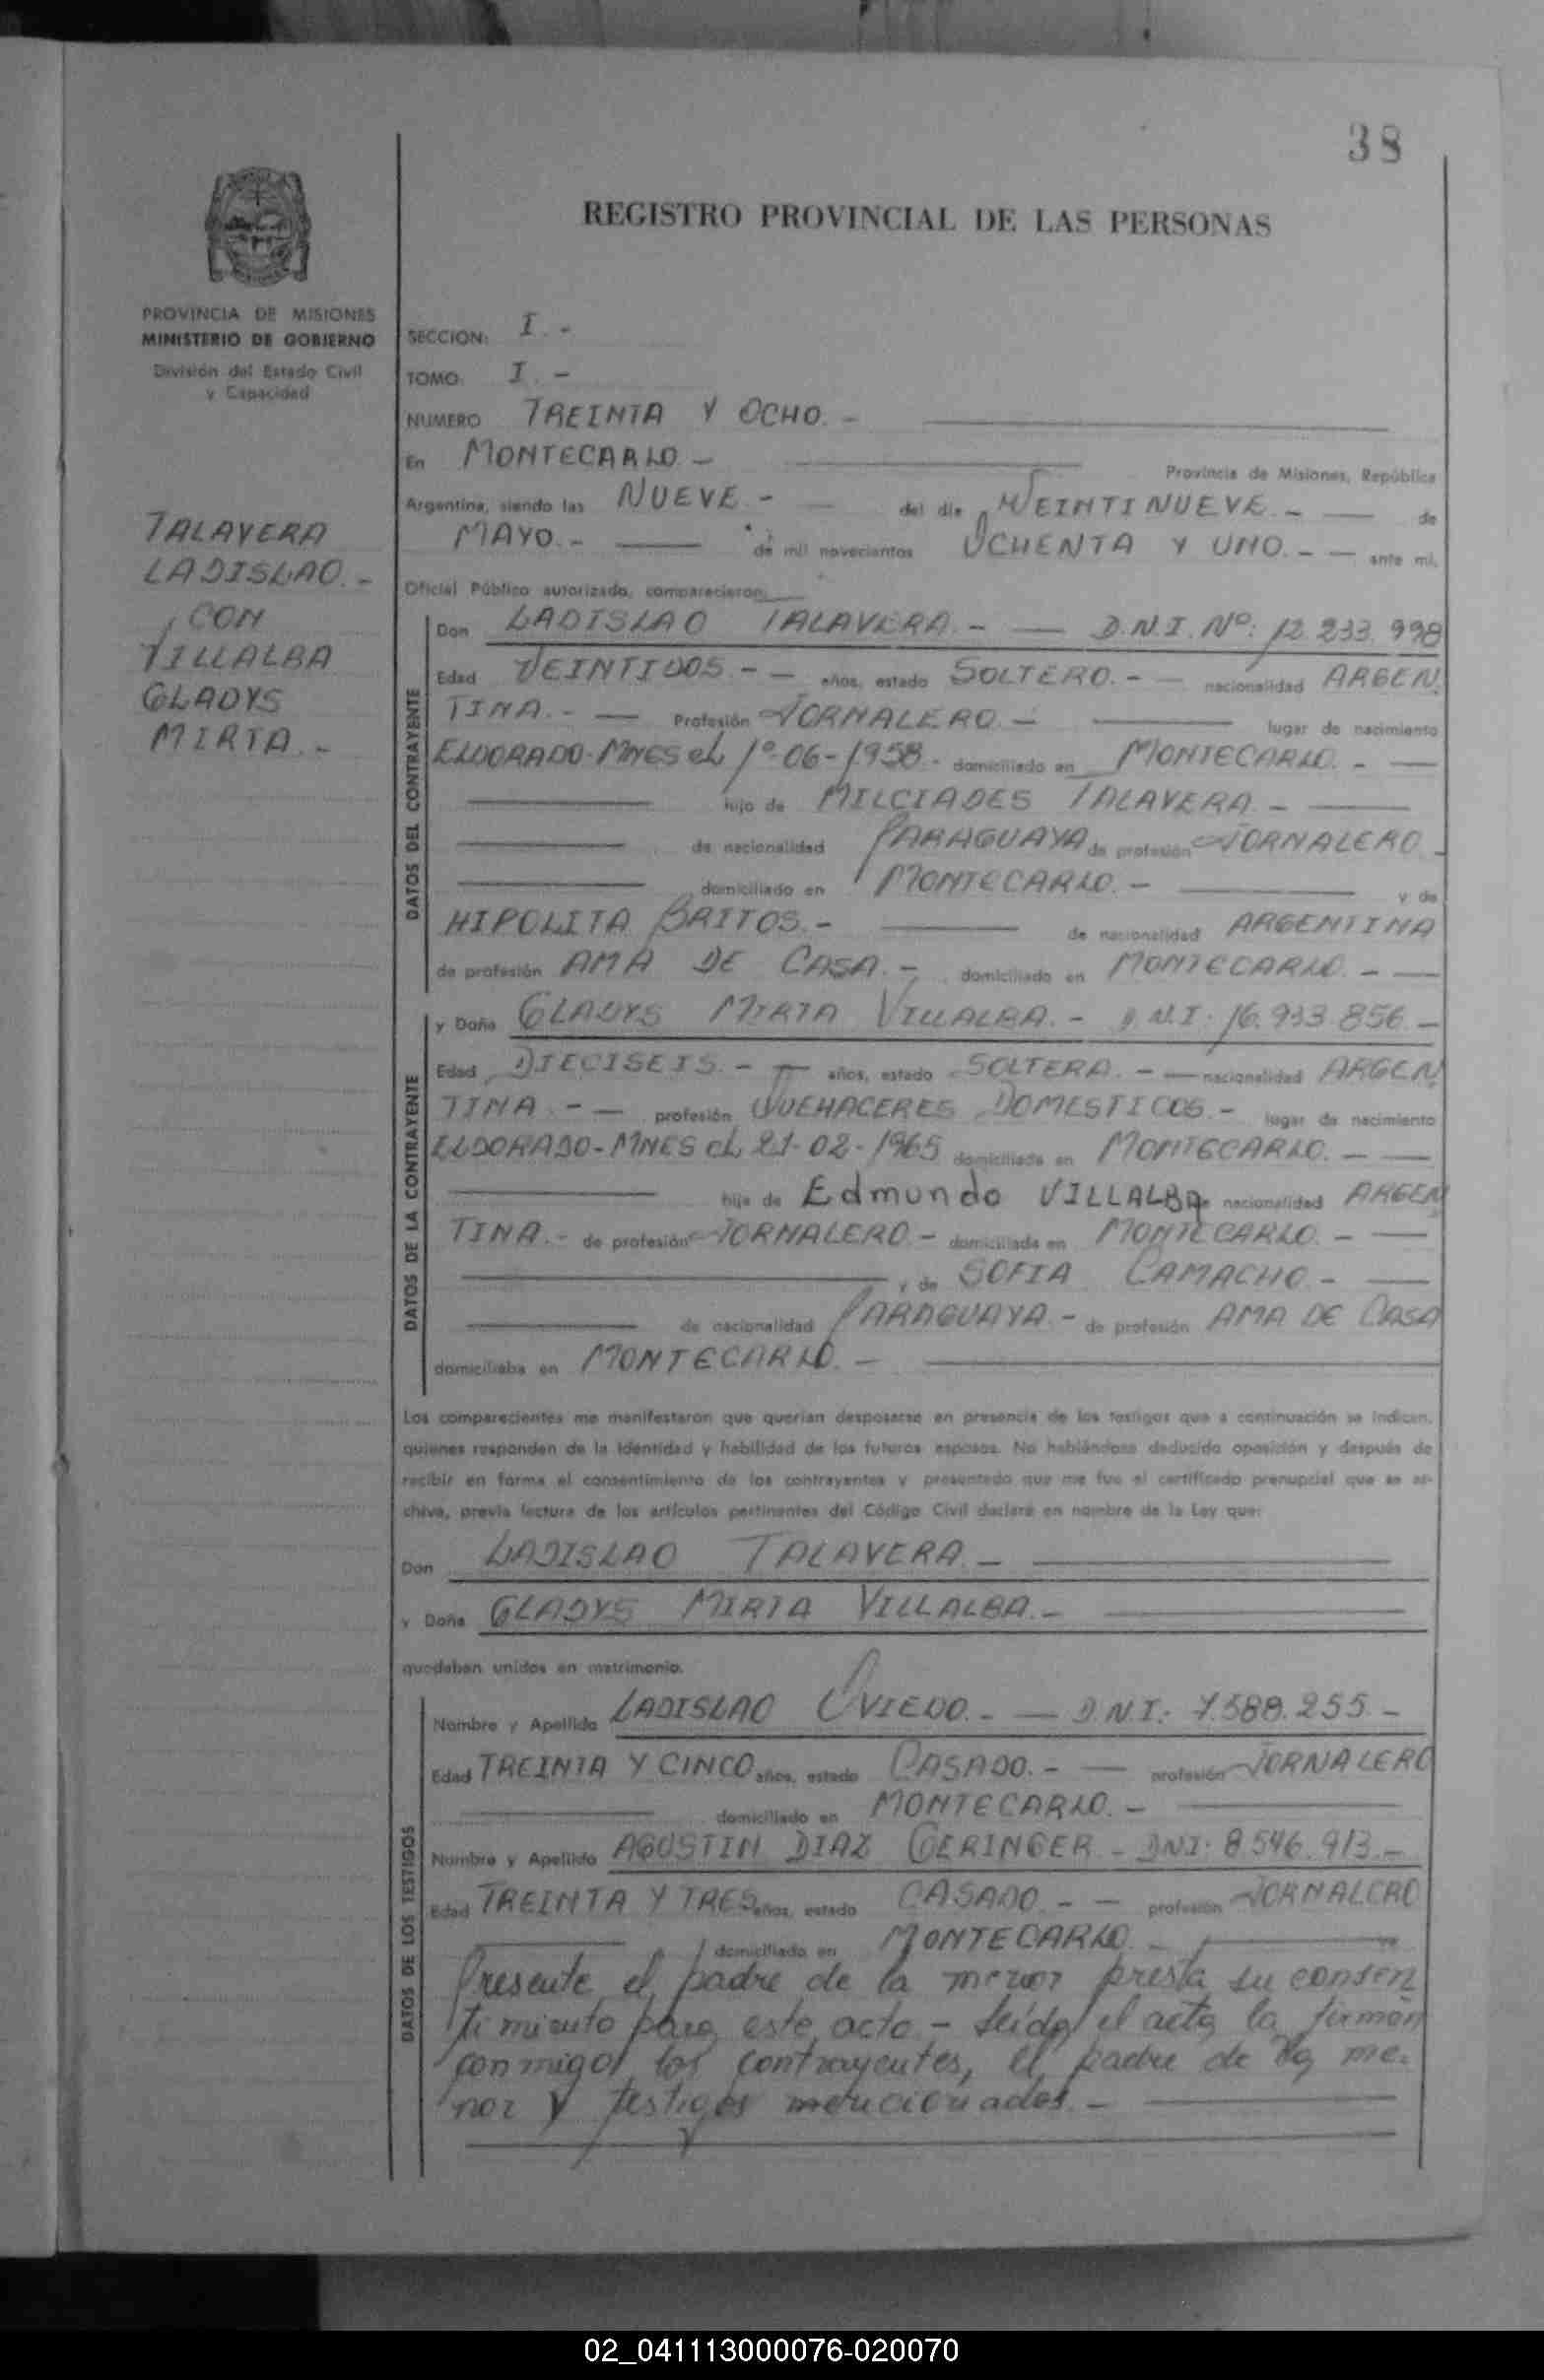 38
REGISTRO PROVINCIAL DE LAS PERSONAS
PROVINCIA DE MISIONES
MINISTERIO DE GOBIERNO
División del Estado Civil
y Capacidad
TALAVERA
LADISLAO.-
CON
VILLALBA
GLADYS
MIRTA.-
SECCION: I.-
TOMO: I.-
NUMERO TREINTA Y OCHO.-
En MONTECARLO.- Provincia de Misiones, República
Argentina, siendo las NUEVE.- del día VEINTINUEVE.- de
MAYO.- de mil novecientos OCHENTA Y UNO.- ante mí,
Oficial Público autorizado, comparecieron:
DATOS DEL CONTRAYENTE
Don LADISLAO TALAVERA.- D.N.I. Nº: 12.233.998
Edad VEINTIDOS.- años, estado SOLTERO.- nacionalidad ARGEN
TINA.- Profesión JORNALERO.- lugar de nacimiento
ELDORADO-MNES el 1º-06-1958.- domiciliado en MONTECARLO.-
hijo de MILCIADES TALAVERA.-
de nacionalidad PARAGUAYA de profesión JORNALERO.-
domiciliado en MONTECARLO.- y de
HIPOLITA BRITOS.- de nacionalidad ARGENTINA
de profesión AMA DE CASA.- domiciliada en MONTECARLO.-
DATOS DE LA CONTRAYENTE
y Doña GLADYS MIRTA VILLALBA.- D.N.I. 16.933.856.-
Edad DIECISEIS.- años, estado SOLTERA.- nacionalidad ARGEN
TINA.- profesión QUEHACERES DOMESTICOS.- lugar de nacimiento
ELDORADO-MNES el 21-02-1965 domiciliada en MONTECARLO.-
hija de Edmundo VILLALBA de nacionalidad ARGEN
TINA.- de profesión JORNALERO.- domiciliado en MONTECARLO.-
y de SOFIA CAMACHO.-
de nacionalidad PARAGUAYA.- de profesión AMA DE CASA
domiciliaba en MONTECARLO.-
Los comparecientes me manifestaron que querían desposarse en presencia de los testigos que a continuación se indican,
quienes responden de la identidad y habilidad de los futuros esposos. No habiéndose deducido oposición y después de
recibir en forma el consentimiento de los contrayentes y presentado que me fue el certificado prenupcial que se ar-
chiva, previa lectura de los artículos pertinentes del Código Civil declaré en nombre de la Ley que:
Don LADISLAO TALAVERA.-
y Doña GLADYS MIRTA VILLALBA.-
quedaban unidos en matrimonio.
DATOS DE LOS TESTIGOS
Nombre y Apellido LADISLAO OVIEDO.- D.N.I.: 7.588.255.-
Edad TREINTA Y CINCO años, estado CASADO.- profesión JORNALERO
domiciliado en MONTECARLO.-
Nombre y Apellido AGUSTIN DIAZ GERINGER.- DNI: 8.546.913.-
Edad TREINTA Y TRES años, estado CASADO.- profesión JORNALERO
domiciliado en MONTECARLO.-
Presente el padre de la menor presta su consen
timiento para este acto.- Leida el acta la firman
conmigo, los contrayentes, el padre de la me-
nor y testigos mencionados.-
02_041113000076-020070